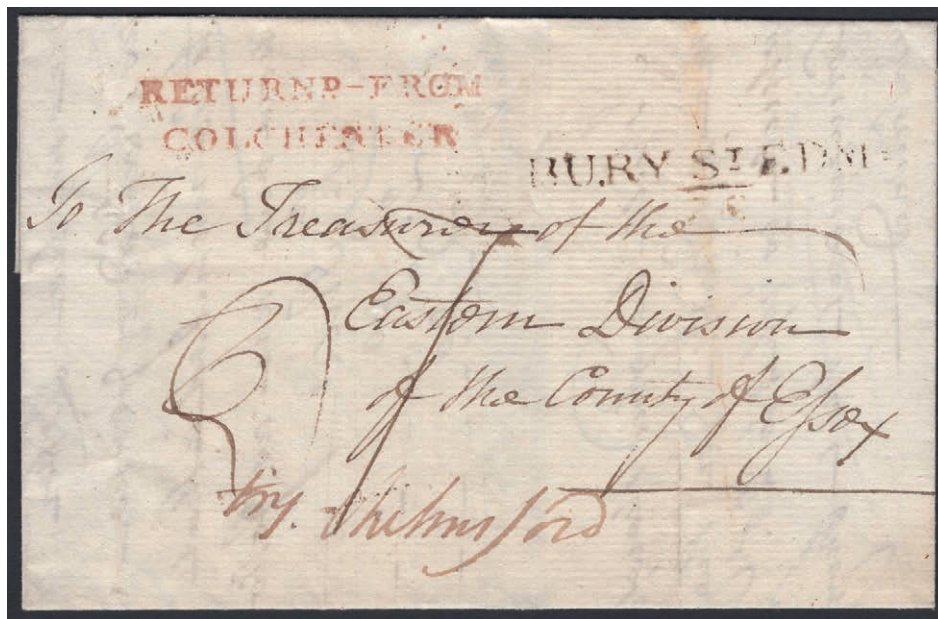 RETURND-FROM
COLCHESTER
BURY ST. EDMD
To The Treasurer of the
Eastern Division
of the County of Essex
try. Chelmsford